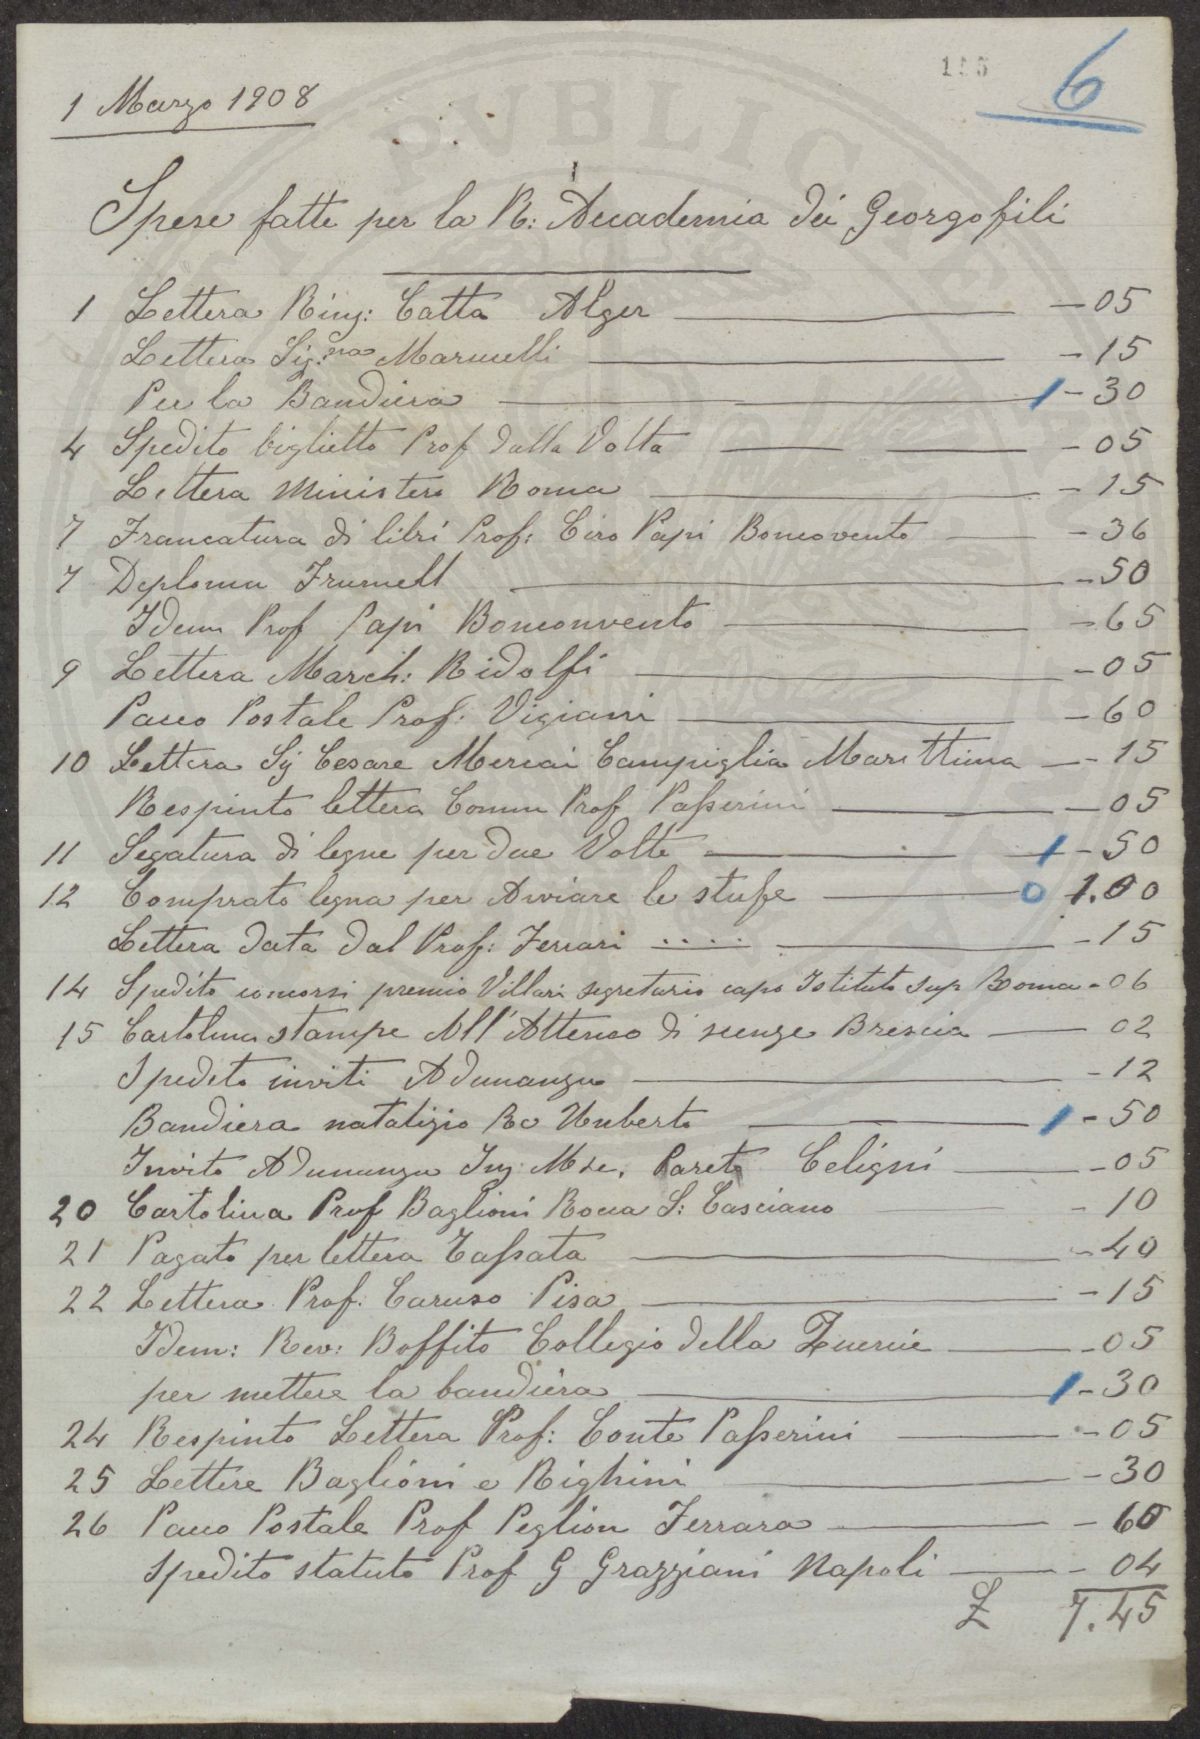 155
6
1 Marzo 1908
Spese fatte per la R: Accademia dei Georgofili
1 Lettera R Ing: Catta Alger — 05
Lettera Sig.na Marucelli — 15
Per la Bandiera 1 — 30
4 Spedito biglietto Prof dalla Volta — 05
Lettera Ministero Roma — 15
7 Francatura di libri Prof: Ciro Papi Boncovento — 36
7 Deploma — 50
Idem Prof Papi Bonconvento — 65
9 Lettera March: Ridolfi — 05
Pacco Postale Prof: Vigiani — 60
10 Lettera Sig Cesare Merciai Campiglia Marittima — 15
Respinto lettera Comm Prof Passerini — 05
11 Segatura di legne per due Volte 1 — 50
12 Comprato legna per Avviare le stufe 0 1.00
Lettera data dal Prof: Ferrari .... — 15
14 Spedito concorsi premio Villari segretario capo Istituto sup Roma - 06
15 Cartolina stampe All'Atteneo di scenze Brescia — 02
Spedito inviti Adunanza — 12
Bandiera natalizio Re Umberto 1 - 50
Invito Adunanza Ing: Mse. Pareto Celigni — 05
20 Cartolina Prof Baglioni Rocca S: Casciano - 10
21 Pagato per lettera Tassata — 40
22 Lettera Prof. Caruso Pisa — 15
Idem: Rev: Boffito Collegio della Querce — 05
per mettere la bandiera 1 - 30
24 Respinto Lettera Prof: Conte Passerini — 05
25 Lettere Baglioni e Righini — 30
26 Pacco Postale Prof Peglion Ferrara — 60
Spedito statuto Prof G Grazziani Napoli — 04
£ 7.45